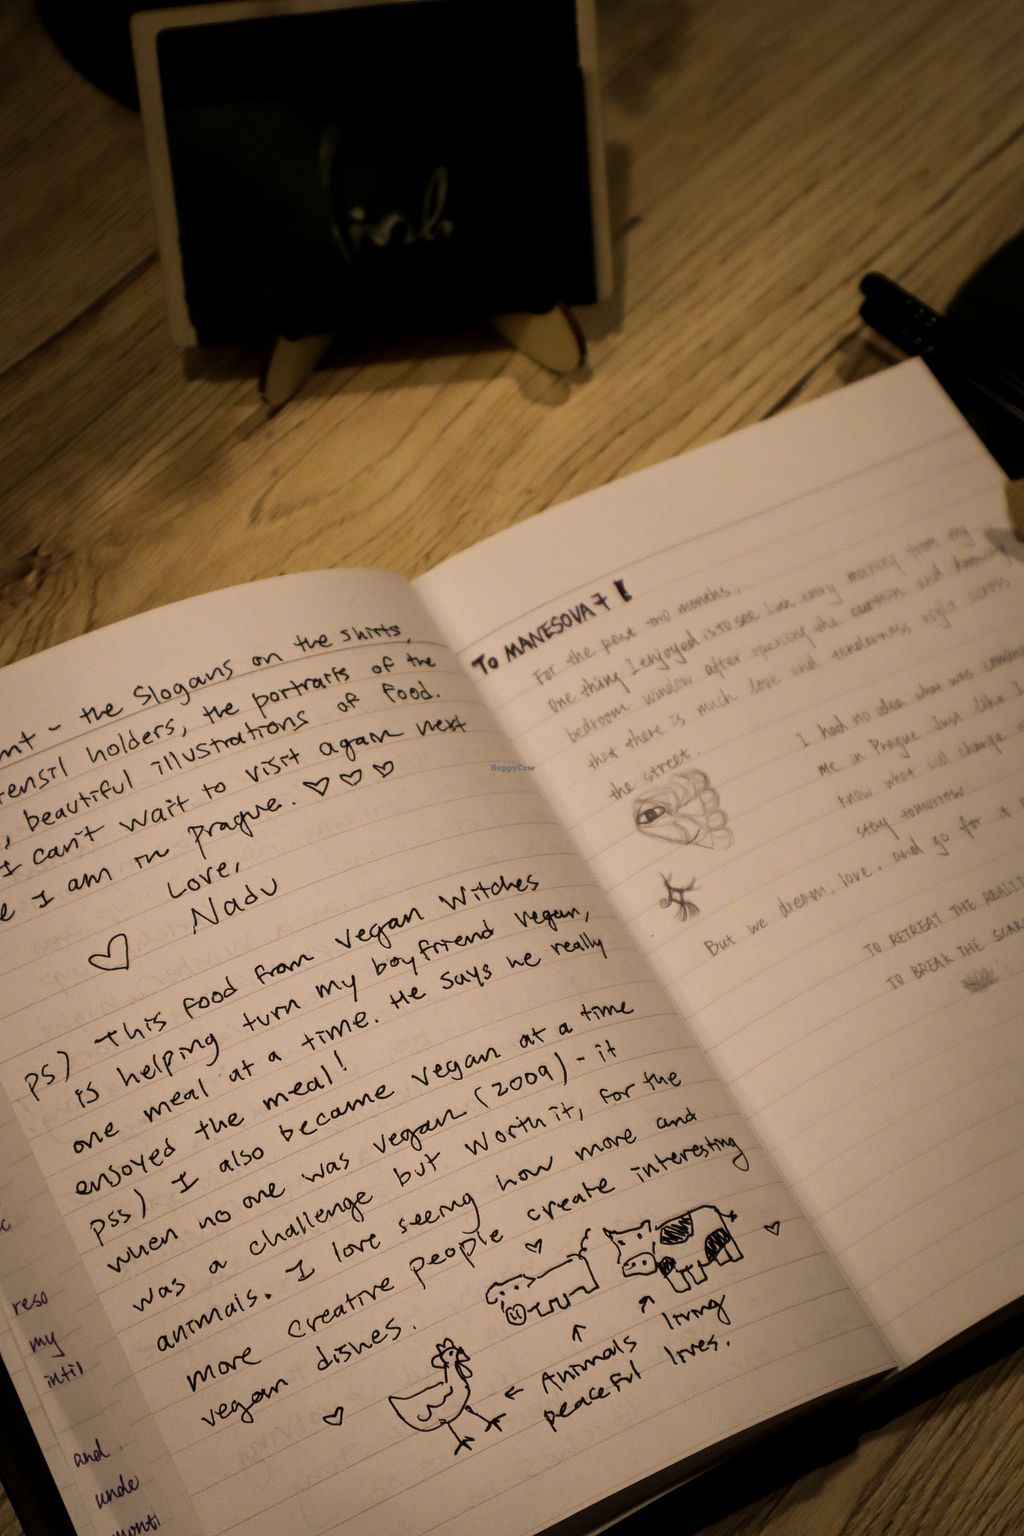 the Slogans on the shirts,
holders, the portraits of the
beautiful illustrations of food.
I can't wait to visit again next
I am in Prague. ♡♡♡
Love,
Nadu
ps) This food from Vegan Witches
is helping turn my boyfriend vegan,
one meal at a time. He says he really
enjoyed the meal!
pss) I also became vegan at a time
when no one was vegan (2009) - it
was a challenge but worth it, for the
animals. I love seeing how more and
more creative people create interesting
vegan dishes.
← Animals living
peaceful lives.
reso
my
intil
and
unde
monti
To MANESOVA 7 !
For the past two months,
one thing I enjoyed is to see Linh every morning from my
bedroom window after opening the curtain and knowing
that there is much love and tenderness right across
the street.
I had no idea what was coming
me in Prague Just like I
know what will change
stay tomorrow
But we dream, love, and go for it
TO RETREAT THE REALI
TO BREAK THE SCAR
HappyCow